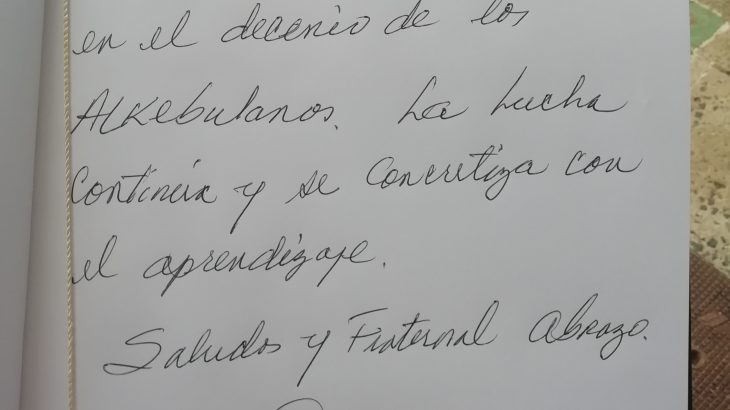 en el decenio de los
Alkebulanos. La Lucha
continúa y se concretiza con
el aprendizaje.
Saludos y Fraternal Abrazo.